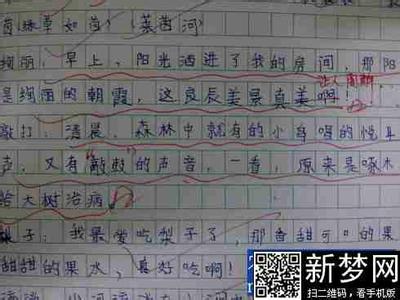 茵绿草如茵》(莱茵河)
绚丽:早上,阳光洒进了我的房间,那阳
是绚丽的朝霞,这良辰美景真美啊!
敲打:清晨,森林中就有的小鸟唱的悦耳
声,又有“敲鼓”的声音,一看,原来是啄木
给大树治病
梨子:我最爱吃梨子了,那香甜可口的果
甜甜的果水,真好吃啊!
新梦网
扫二维码,看手机版